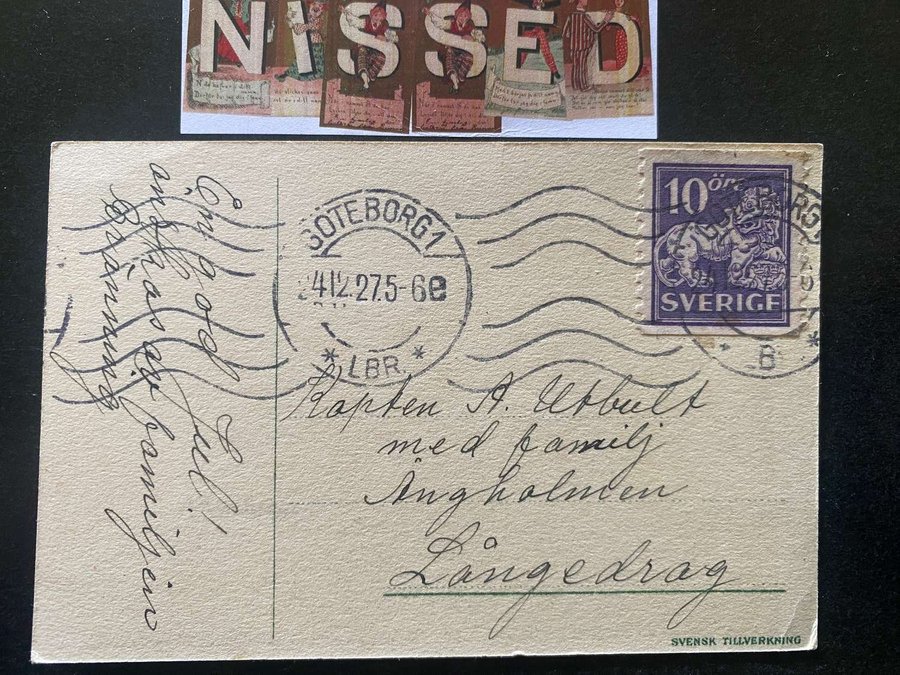 NISSED
En god Jul!
önskas av familjen
Bränning
GÖTEBORG 1
24.12.27.5-6e
* LBR. *
10 öre
SVERIGE
Kapten A. Utbult
med familj
Ängholmen
Långedrag
SVENSK TILLVERKNING